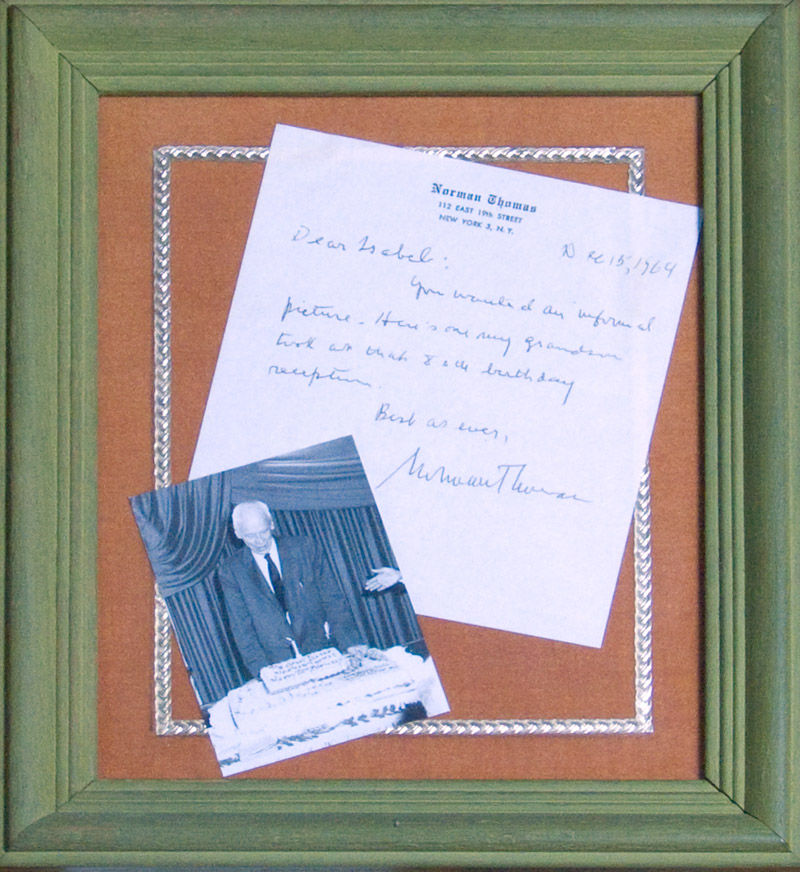 Norman Thomas
112 EAST 19th STREET
NEW YORK 3, N. Y.
Dec 15, 1964
Dear Isabel:
You wanted an informal
picture. Here's one my grandson
took at that 80th birthday
reception.
Best as ever,
Norman Thomas